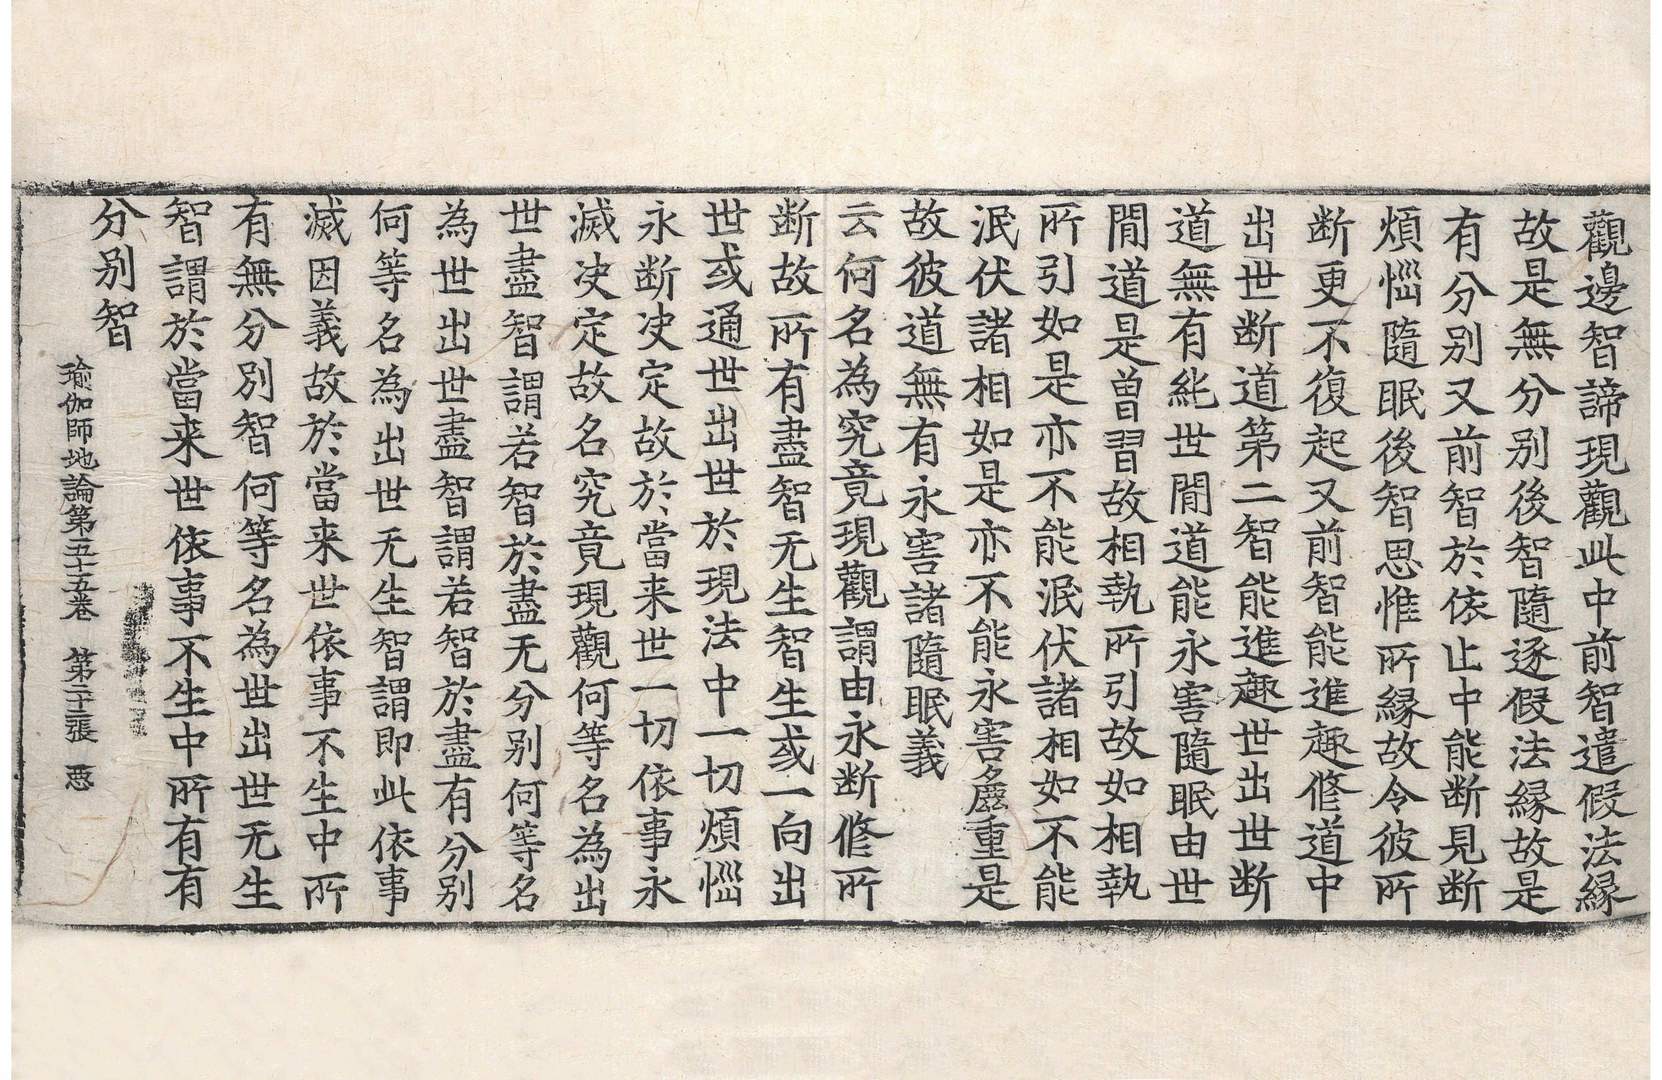 觀邊智諦現觀此中前智遣假法縁
故是無分别後智隨逐假法縁故是
有分别又前智於依止中能断見断
煩惱隨眠後智思惟所縁故令彼所
断更不復起又前智能進趣修道中
出世断道第二智能進趣世出世断
道無有純世間道能永害隨眠由世
間道是曽習故相執所引故如相執
所引如是亦不能泯伏諸相如不能
泯伏諸相如是亦不能永害麁重是
故彼道無有永害諸隨眠義
云何名為究竟現觀謂由永断修所
断故所有盡智无生智生或一向出
世或通世出世於現法中一切煩惱
永断决定故於當来世一切依事永
滅决定故名究竟現觀何等名為出
世盡智謂若智於盡无分别何等名
為世出世盡智謂若智於盡有分别
何等名為出世无生智謂即此依事
滅因義故於當来世依事不生中所
有無分别智何等名為世出世无生
智謂於當来世依事不生中所有有
分别智
瑜伽師地論第五十五卷　第二十二張　惡